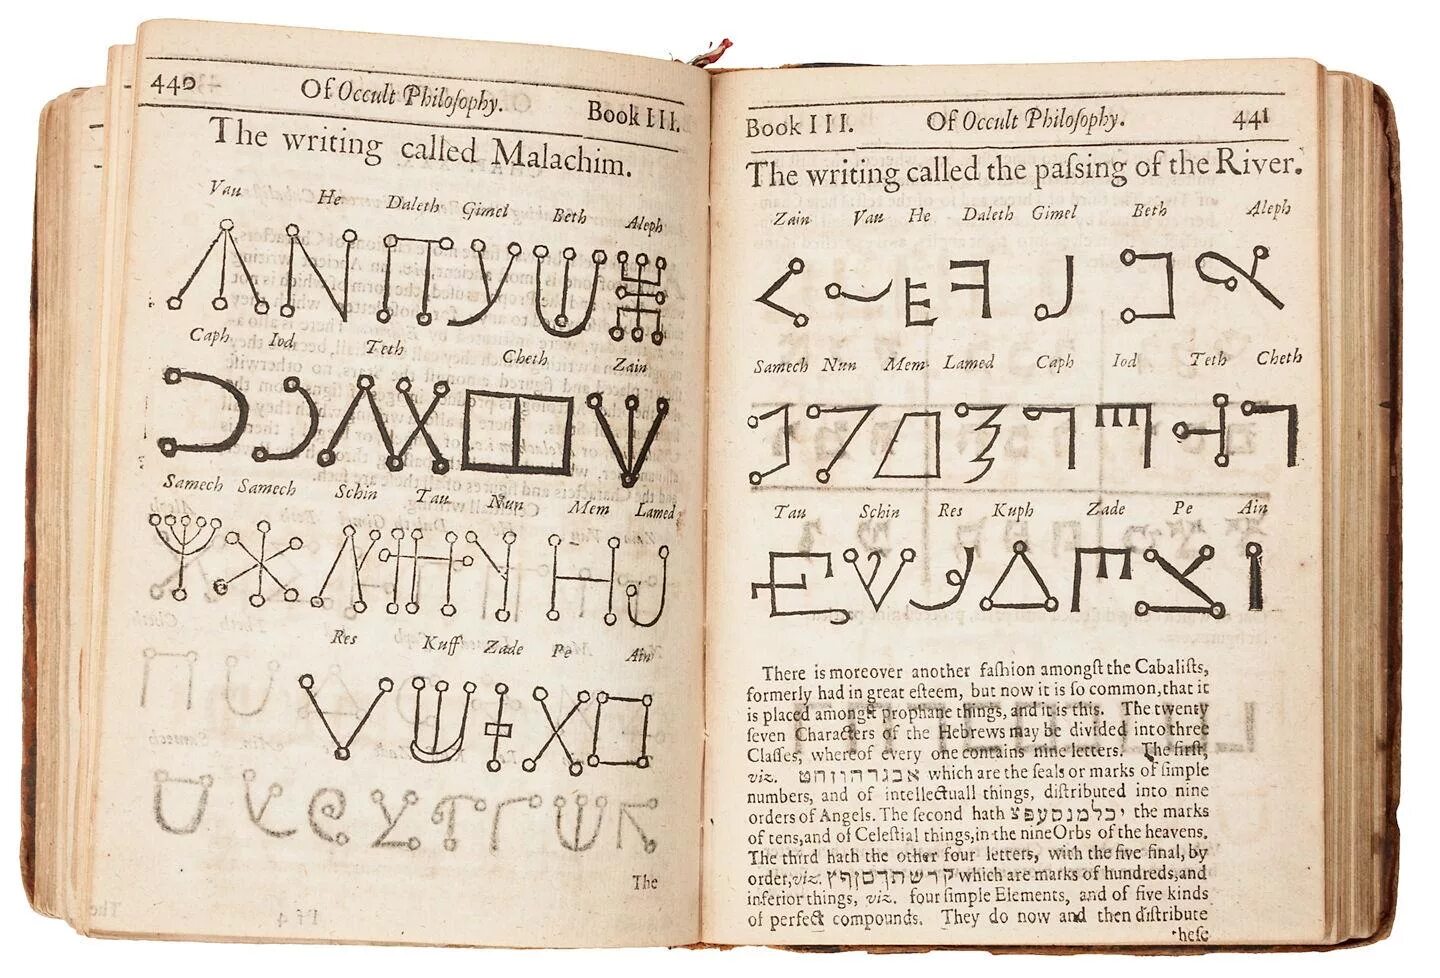 440 Of Occult Philoſophy. Book III.
The writing called Malachim.
Vau He Daleth Gimel Beth Aleph
Caph Iod Teth Cheth Zain
Samech Samech Schin Tau Nun Mem Lamed
Res Kuff Zade Pe Ain
The
Ff 4
Book III. Of Occult Philoſophy. 441
The writing called the paſsing of the River.
Zain Vau He Daleth Gimel Beth Aleph
Samech Nun Mem Lamed Caph Iod Teth Cheth
Tau Schin Res Kuph Zade Pe Ain
There is moreover another faſhion amongſt the Cabaliſts,
formerly had in great eſteem, but now it is ſo common, that it
is placed amongſt prophane things, and it is this. The twenty
ſeven Characters of the Hebrews may be divided into three
Claſſes, whereof every one contains nine letters. The firſt,
viz. אבגדהוזחט which are the ſeals or marks of ſimple
numbers, and of intellectuall things, diſtributed into nine
orders of Angels. The ſecond hath יכלמנסעפצ the marks
of tens, and of Celeſtial things, in the nine Orbs of the heavens.
The third hath the other four letters, with the five final, by
order, viz. קרשתךםןףץ which are marks of hundreds, and
inferior things, viz. four ſimple Elements, and of five kinds
of perfect compounds. They do now and then diſtribute
theſe